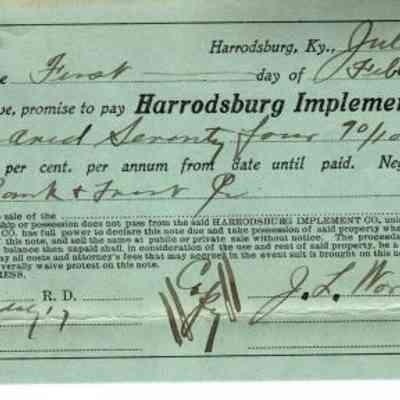 Harrodsburg, Ky., Jul
e First day of Feb
ve, promise to pay Harrodsburg Implemen
and Seventy four 90/10
per cent. per annum from date until paid. Neg
Bank & Trust Co
sale of the
ship or possession does not pass from the said HARRODSBURG IMPLEMENT CO., un
CO. has full power to declare this note due and take possession of said property whe
this note, and sell the same at public or private sale without notice. The proceeds
balance then unpaid shall, in consideration of the use and rent of said property, be a
ay all costs and attorney's fees that may accrue in the event suit is brought on this no
verally waive protest on this note.
RESS.
R. D.
J. L. Wor